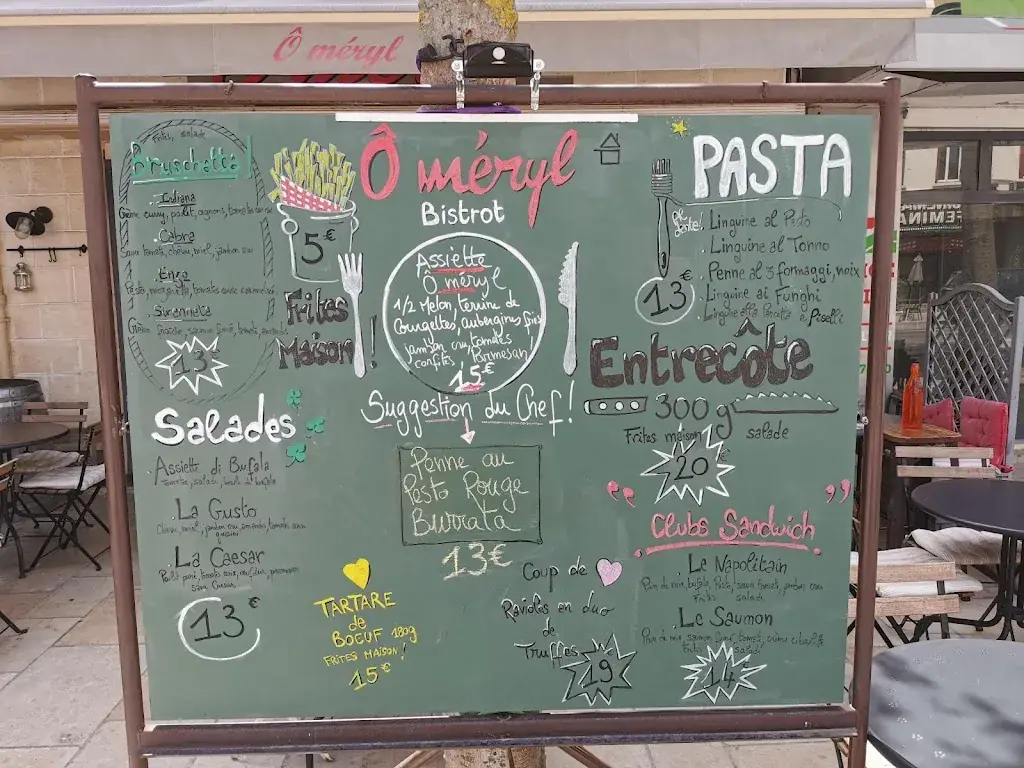 Ô méryl
Frites, salade
Bruschetta
Indiana
Crème curry, poulet, oignons, tomates cerise
Cabra
Sauce tomate, chèvre, miel, jambon cru
Enzo
Pesto, mozzarella, tomates cerise
Crème fraîche, saumon fumé, tomate
13€
5€
Frites
Maison !
Ô méryl
Bistrot
Assiette
Ô méryl
1/2 Melon, terrine de
Courgettes, aubergines
jambon cru tomates
confites, Parmesan
15€
Suggestion du Chef!
Penne au
Pesto Rouge
Burrata
13€
Salades
Assiette di Bufala
tomates, salade, boule de bufala
La Gusto
Chèvre, miel, jambon cru, tomates
La Caesar
Poulet pané, tomates cerise, parmesan
sauce Caesar
13€
TARTARE
de
BOEUF 180g
FRITES MAISON!
15€
Coup de
Ravioles en duo
de
Truffes
19
PASTA
al dente!
Linguine al Pesto
Linguine al Tonno
Penne al 3 formaggi, noix
Linguine ai Funghi
Linguine alla e Piselli
13€
Entrecôte
300g
Frites maison salade
20€
Clubs Sandwich
Le Napolitain
Pain de mie, bufala, Pesto, jambon cru
Frites salade
Le Saumon
Pain de mie, saumon fumé, tomate, crème
Frites salade
14
FEMINA